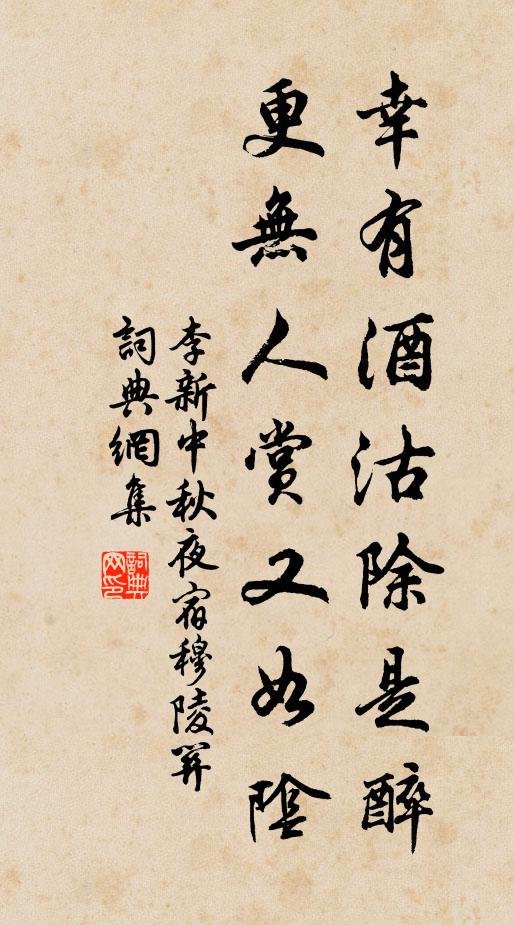 幸有酒沽除是醉
更無人賞又如陰
李新中秋夜宿穆陵関
詞典網集
詞典网印